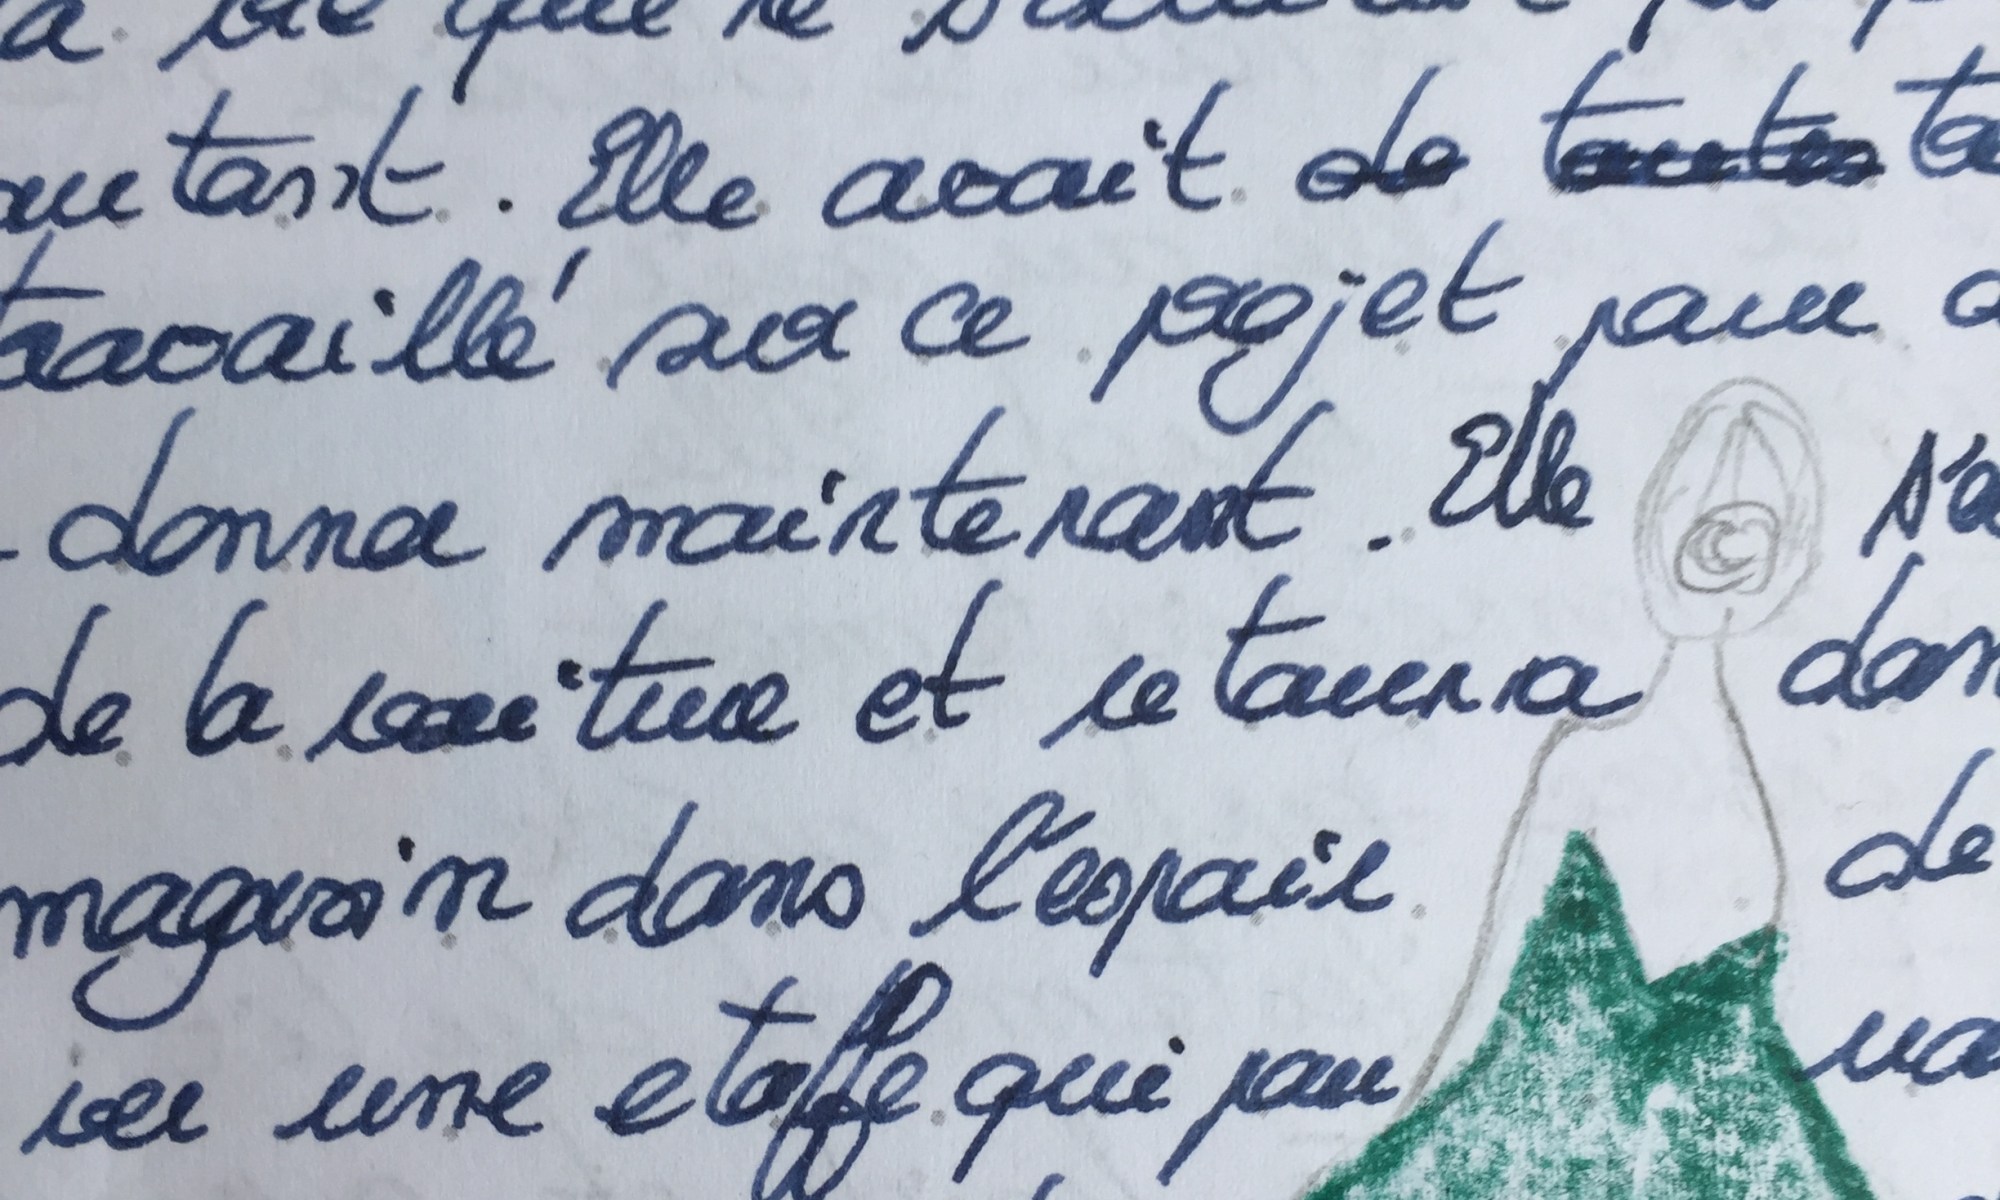 a vie que le
autant. Elle avait de toutes ta
travaillé sur ce projet pour a
-donna maintenant. Elle s'a
de la voiture et retourna dan
magasin dans l'espoir de
ver une etoffe qui pou va